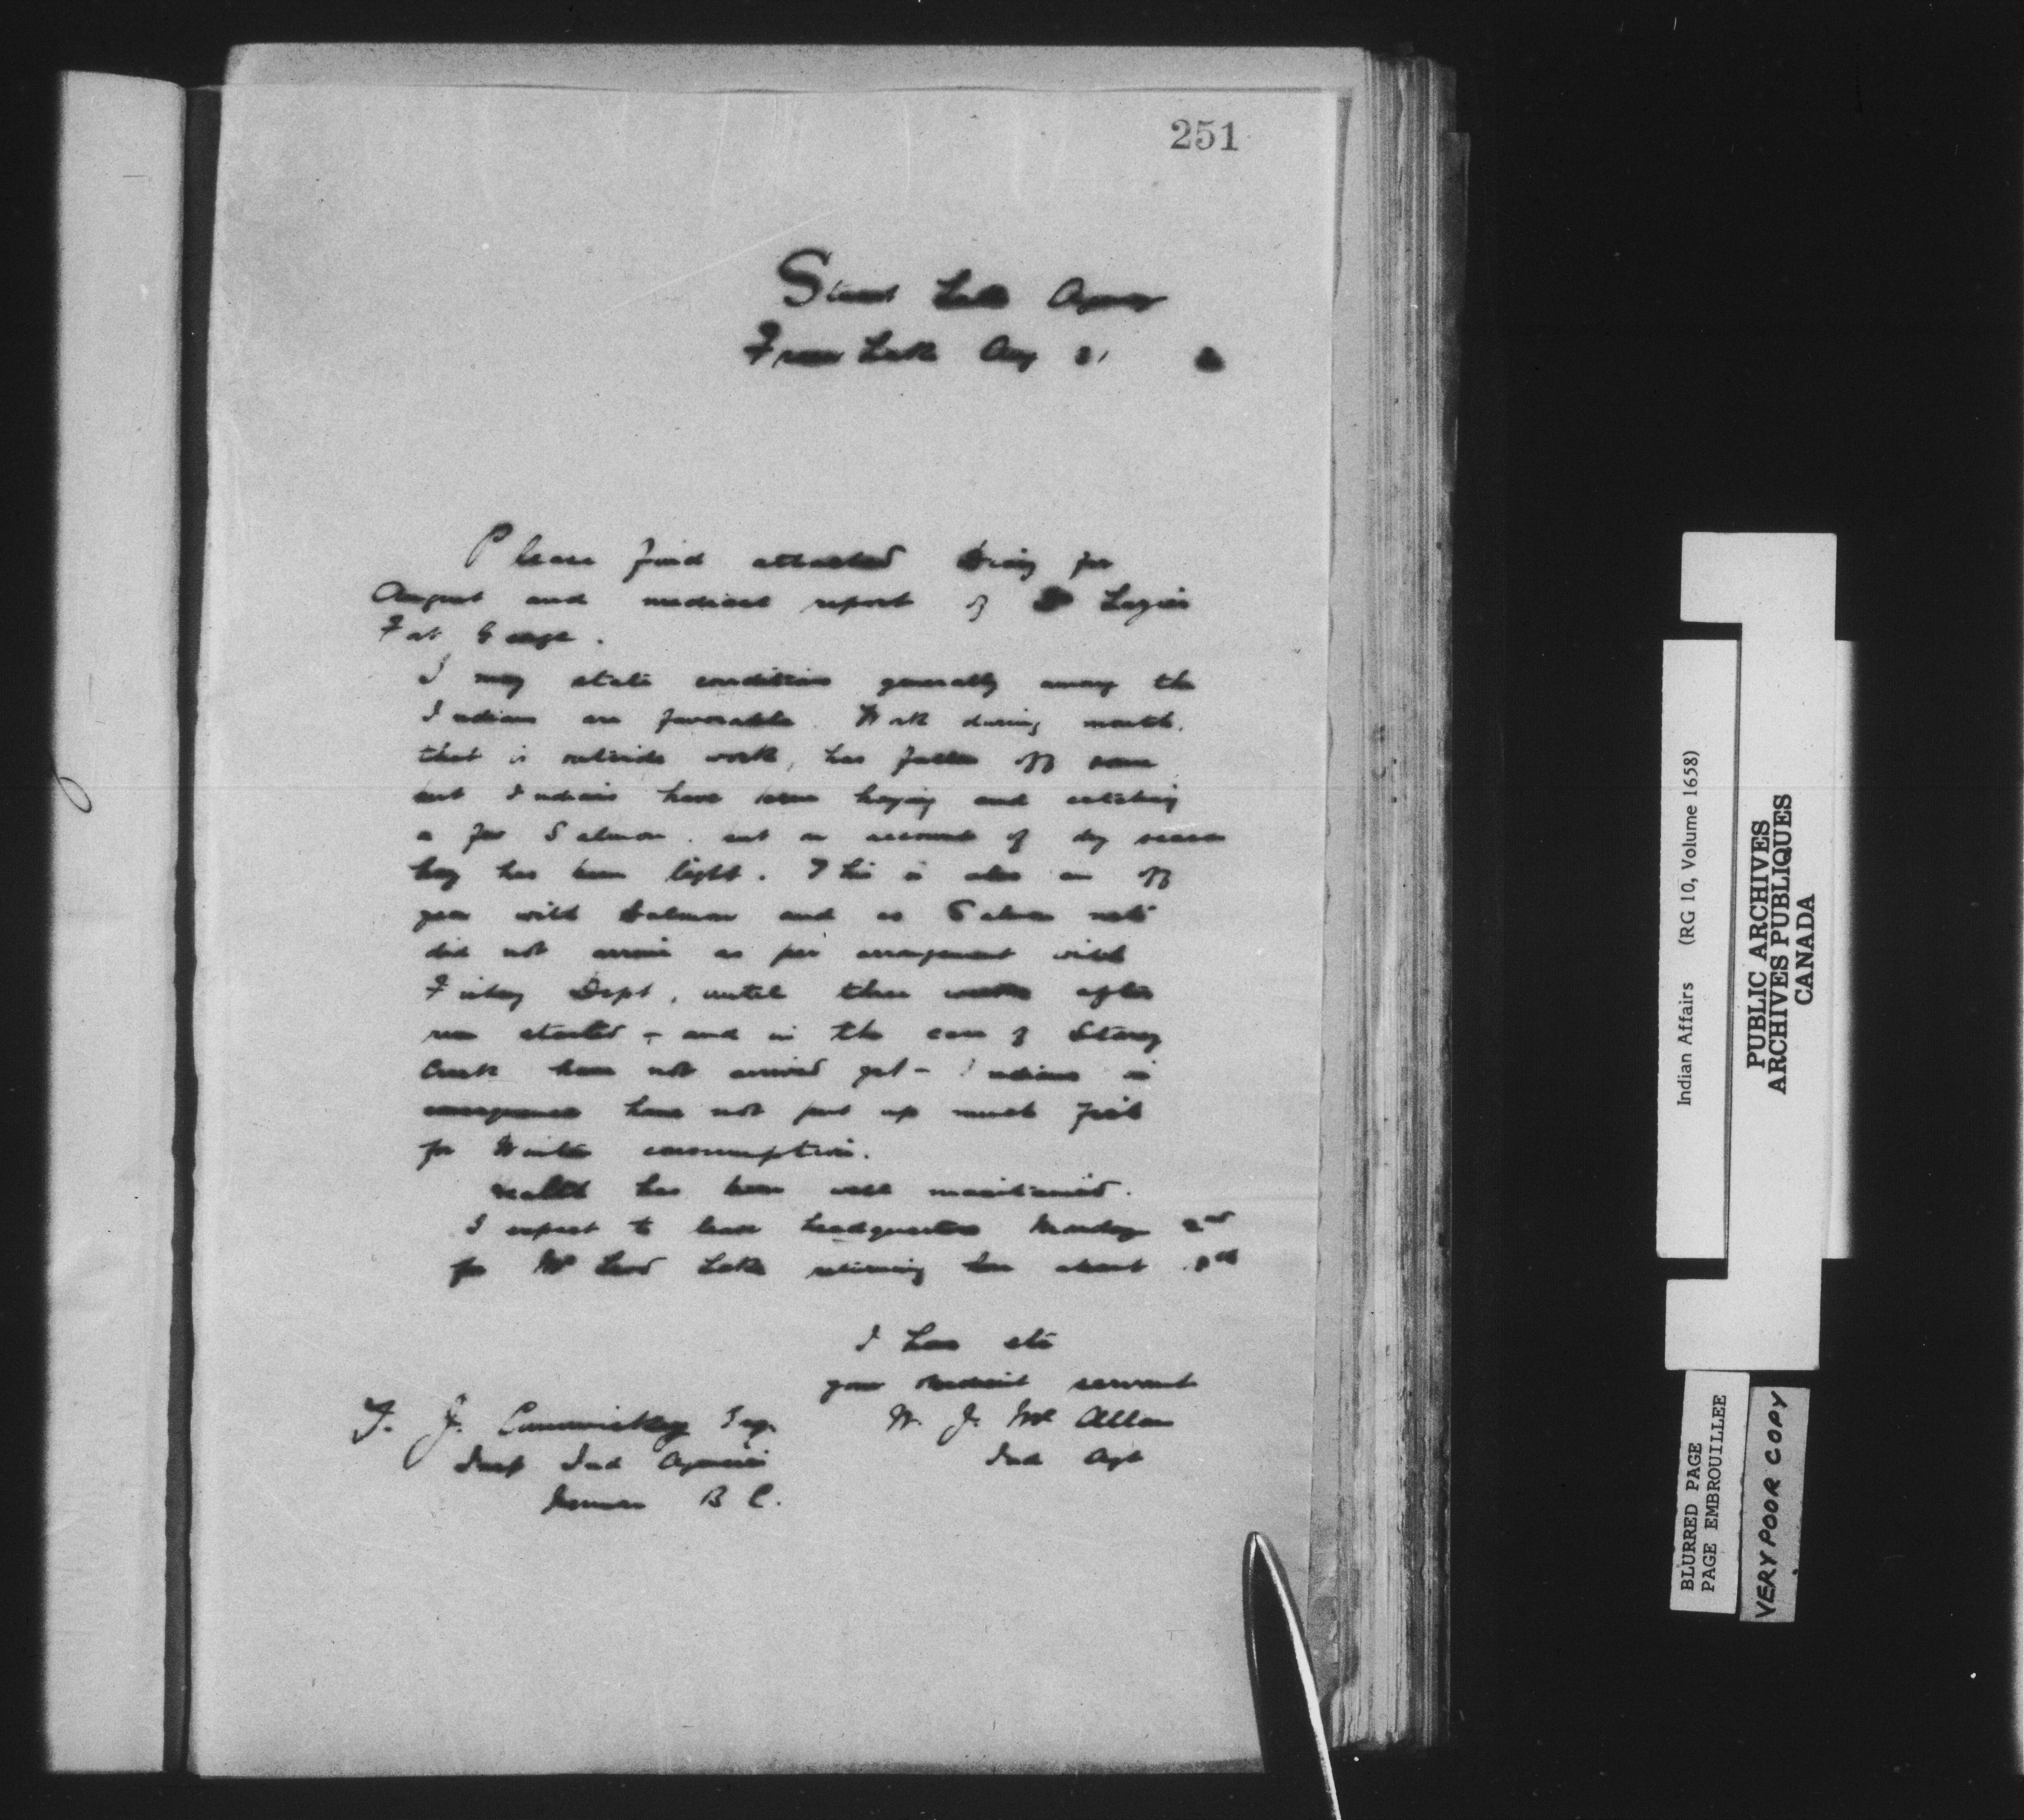 251
Stuart Lake Agency
Fraser Lake Aug 31
Please find attached diary for
August and medical report of Dr Lazier
Fort George.
I may state conditions generally among the
Indians are favorable. Work during month,
that is outside work, has fallen off some
but Indians have been haying and catching
a few Salmon. but on account of dry season
hay has been light. This is also an off
year with Salmon and as Salmon nets
did not arrive as per arrangement with
Fishery Dept, until three weeks after
run started - and in the case of Stoney
Creek have not arrived yet - Indians in
consequence have not put up much fish
for Winter consumption.
Health has been well maintained.
I expect to leave headquarters Monday 2nd
for McLeod Lake returning here about
I have etc
your obedient servant
W. J. McAllan
Ind Agt
F. J. Cummiskey Esq.
Insp Ind Agencies
Vernon B C.
Indian Affairs (RG 10, Volume 1658)
PUBLIC ARCHIVES
ARCHIVES PUBLIQUES
CANADA
BLURRED PAGE
PAGE EMBROUILLEE
VERY POOR COPY